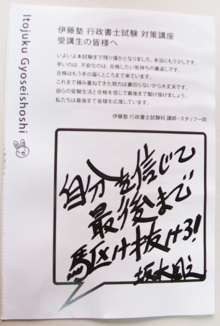 Itojuku Gyoseishoshi
伊藤塾 行政書士試験 対策講座
受講生の皆様へ
いよいよ本試験まで残り僅かとなりました。本当にもう少しです。
辛いのは、不安なのは、合格したい気持ちの裏返しです。
合格はもう手の届くところまで来ています。
これまで積み重ねてきた努力は裏切らないから大丈夫です。
自らの受験生活と合格を信じて最後まで駆け抜けましょう。
私たちは最後まで皆様を応援しています。
伊藤塾 行政書士試験科 講師・スタッフ一同
自分を信じて
最後まで
駆け抜けろ!